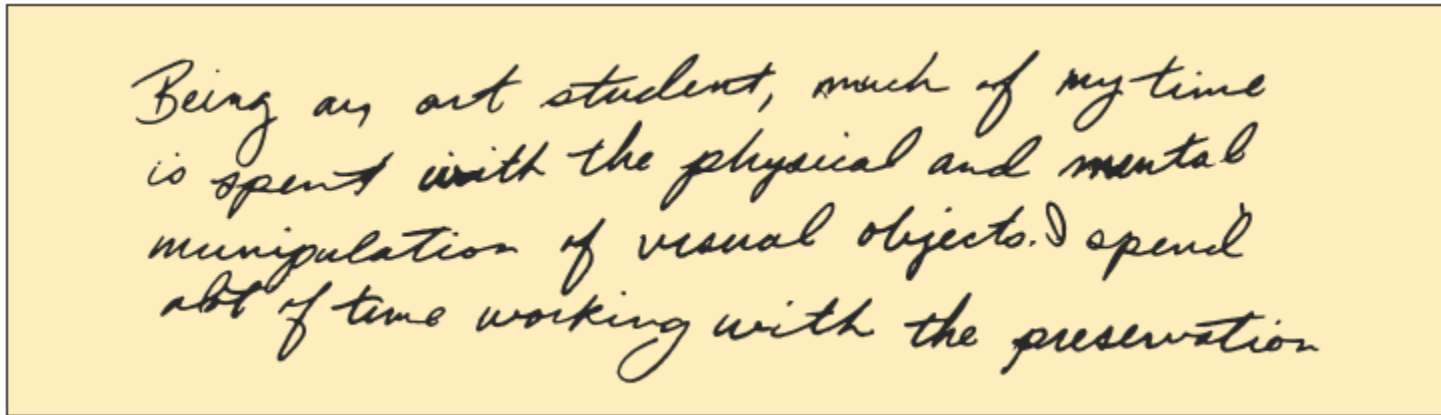 Being an art student, much of my time
is spent with the physical and mental
munipulation of visual objects. I spend
alot of time working with the preservation